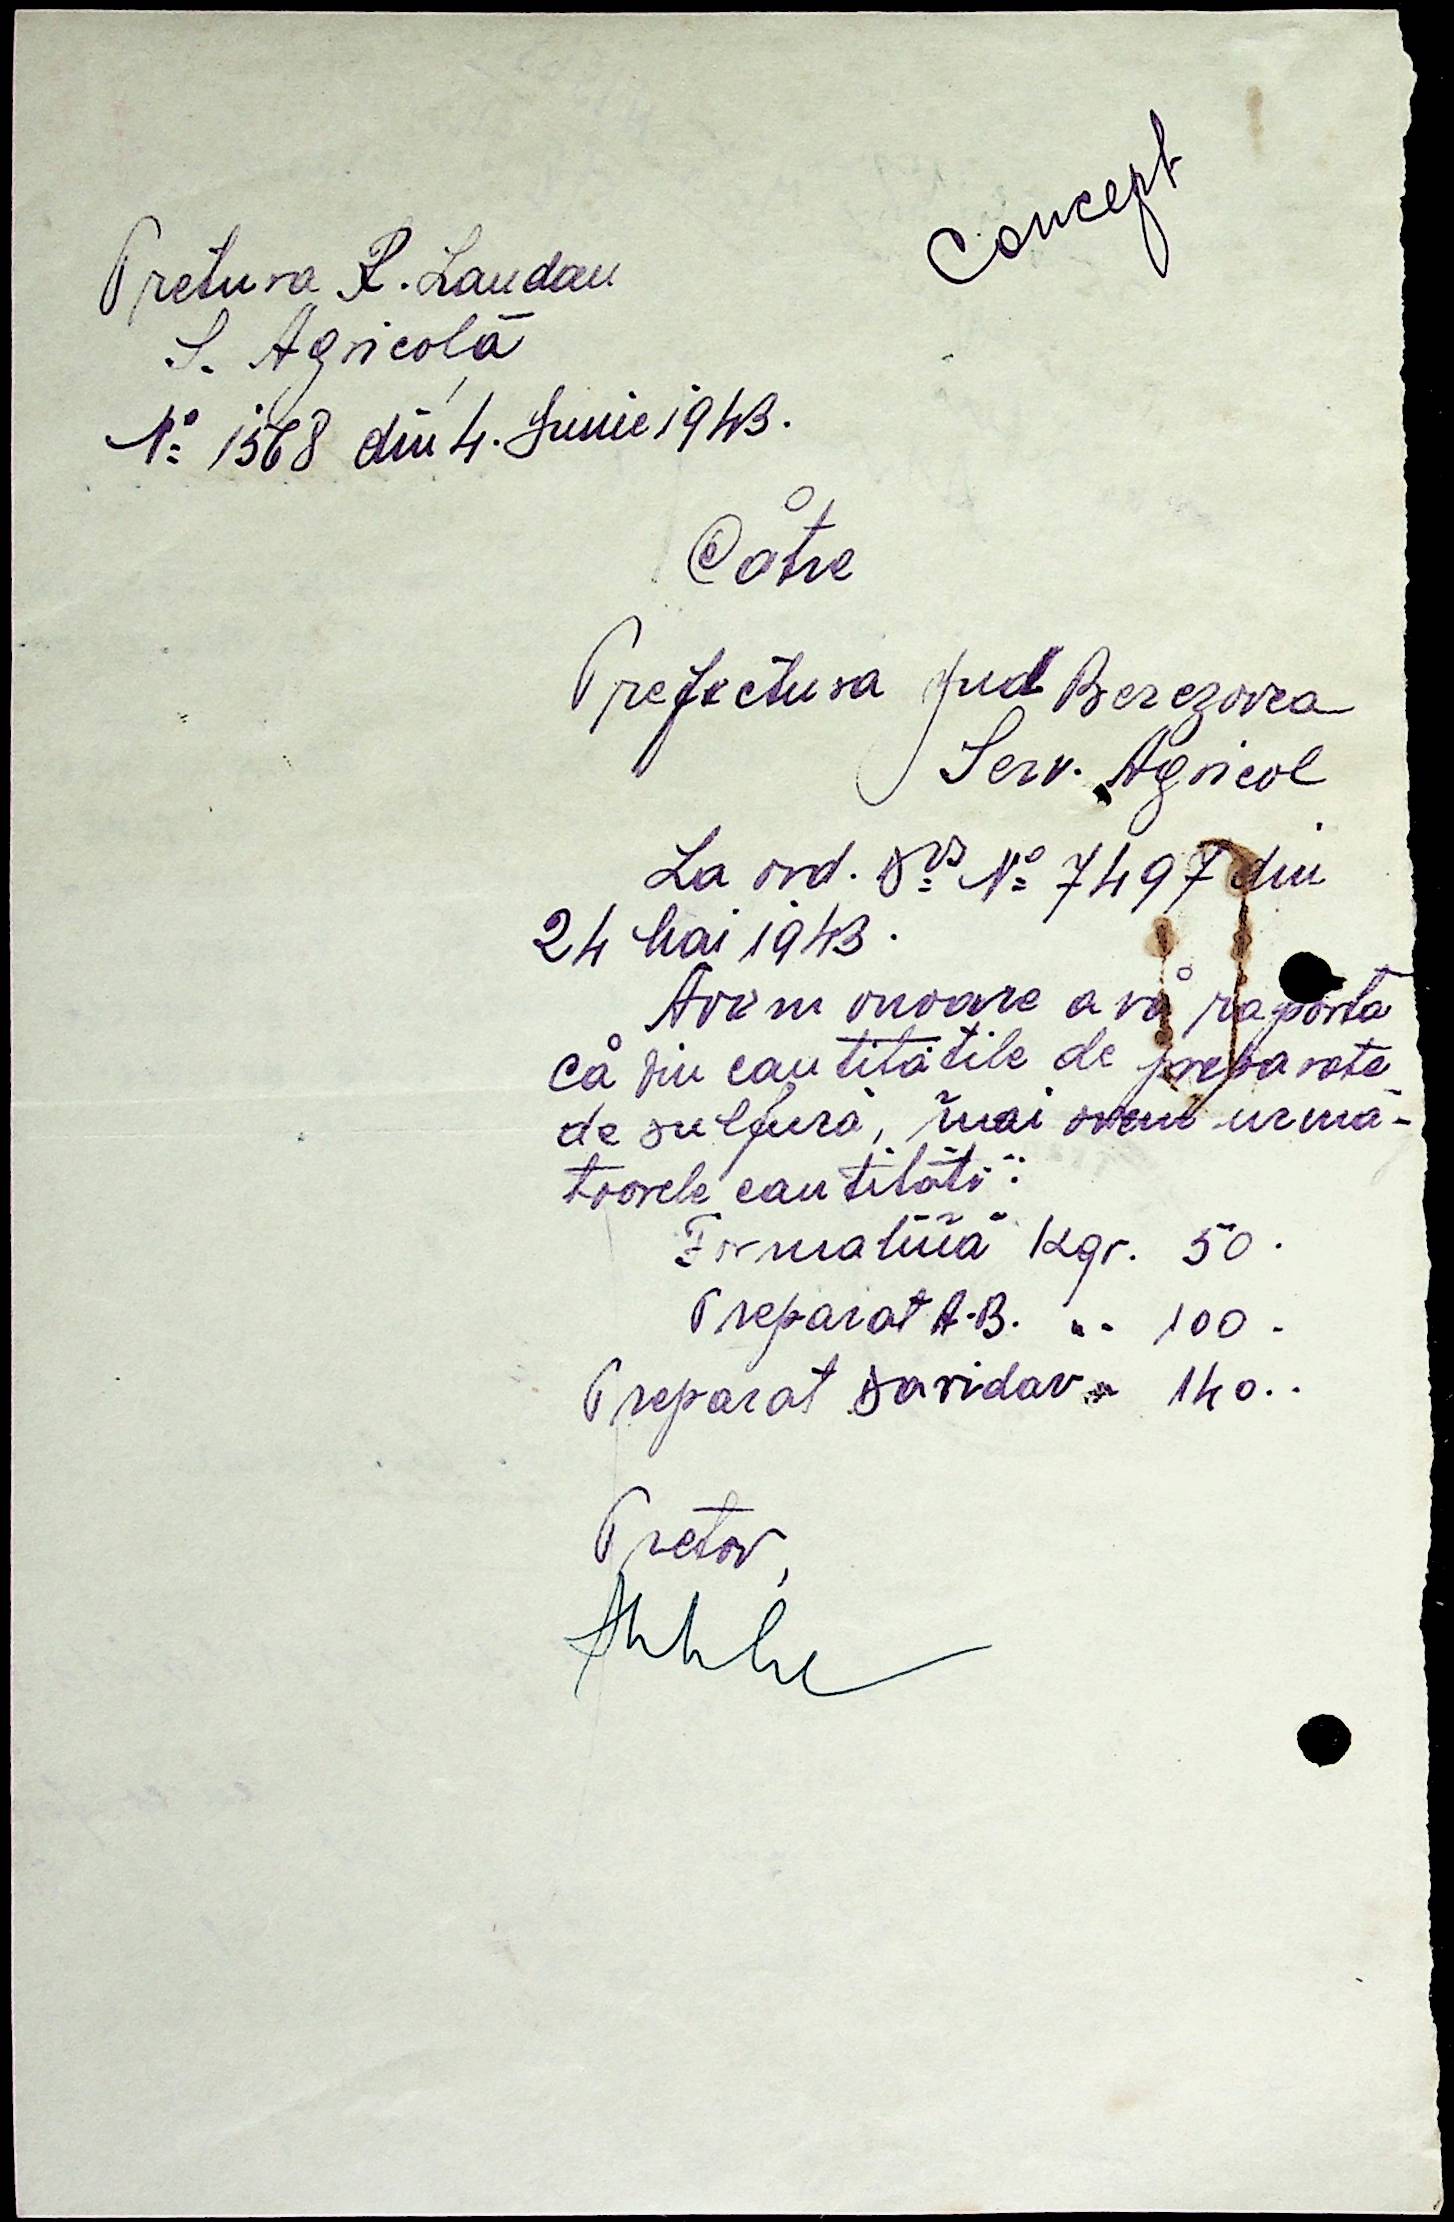 Concept
Pretura R. Landau
S. Agricolă
No 1568 din 4. Junie 1943.
Către
Prefectura Jud Berezovca
Serv. Agricol
La ord. Dvs No 7497 din
24 Mai 1943.
Avem onoare a vă raporta
că din cantitătile de preparate
de sulfură, mai avem urmă-
toarele cantităti:
Formalină Kgr. 50.
Preparat A.B. " 100.
Preparat " 140..
Pretor,